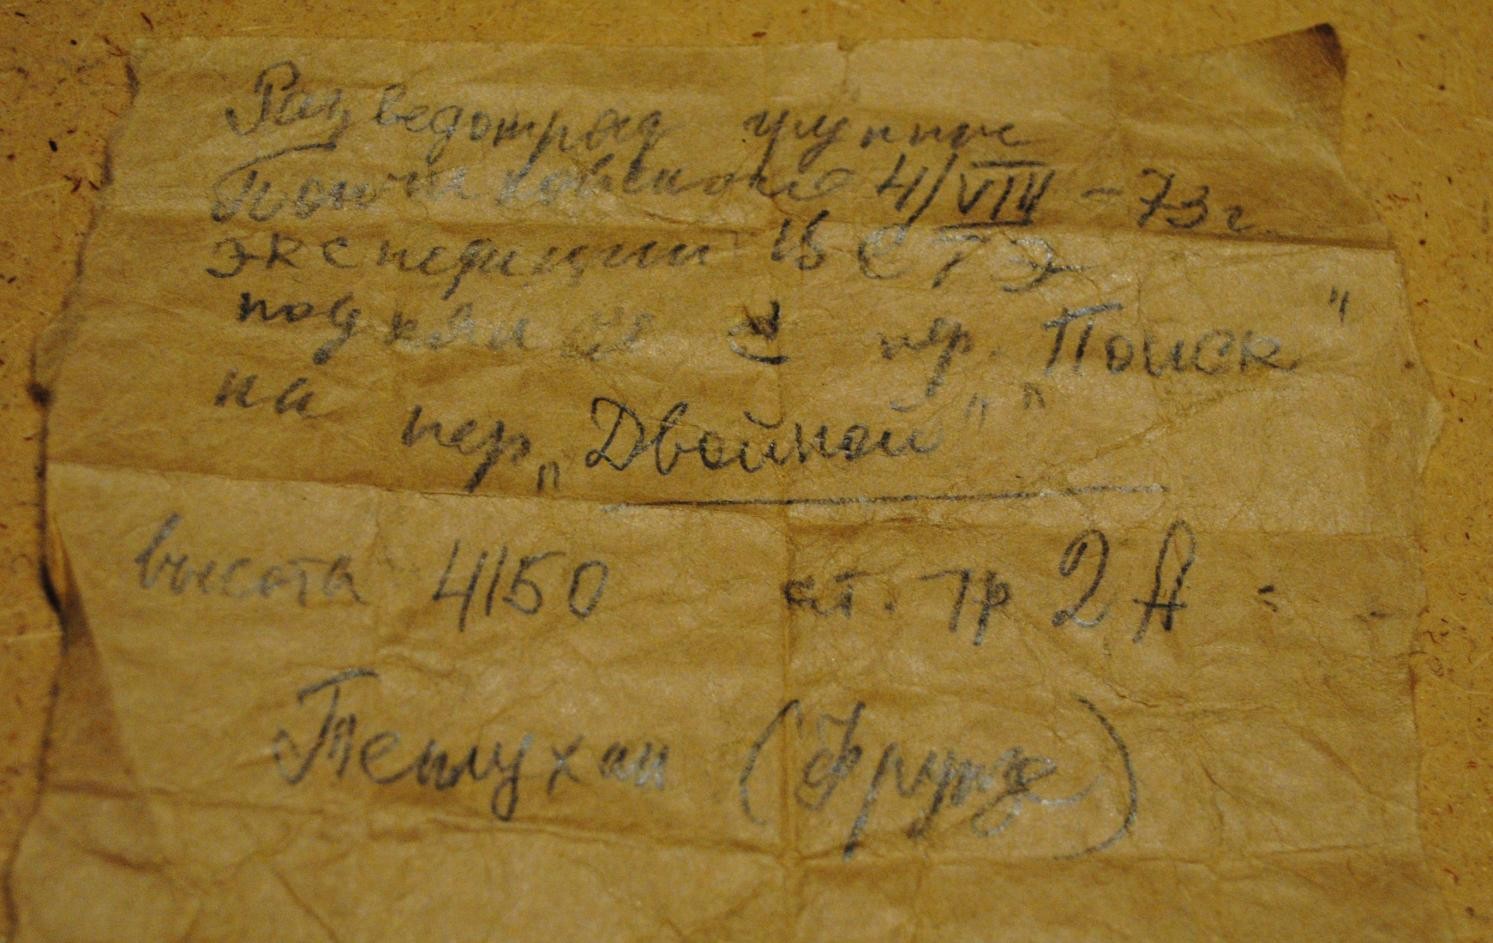 Разведотряд группы
4/VIII - 73 г.
экспедиции СТЭ
поднялся с пер. „Поиск"
на пер „Двойной"
высота 4150 кт. тр 2А
Теплухин (Фрунзе)